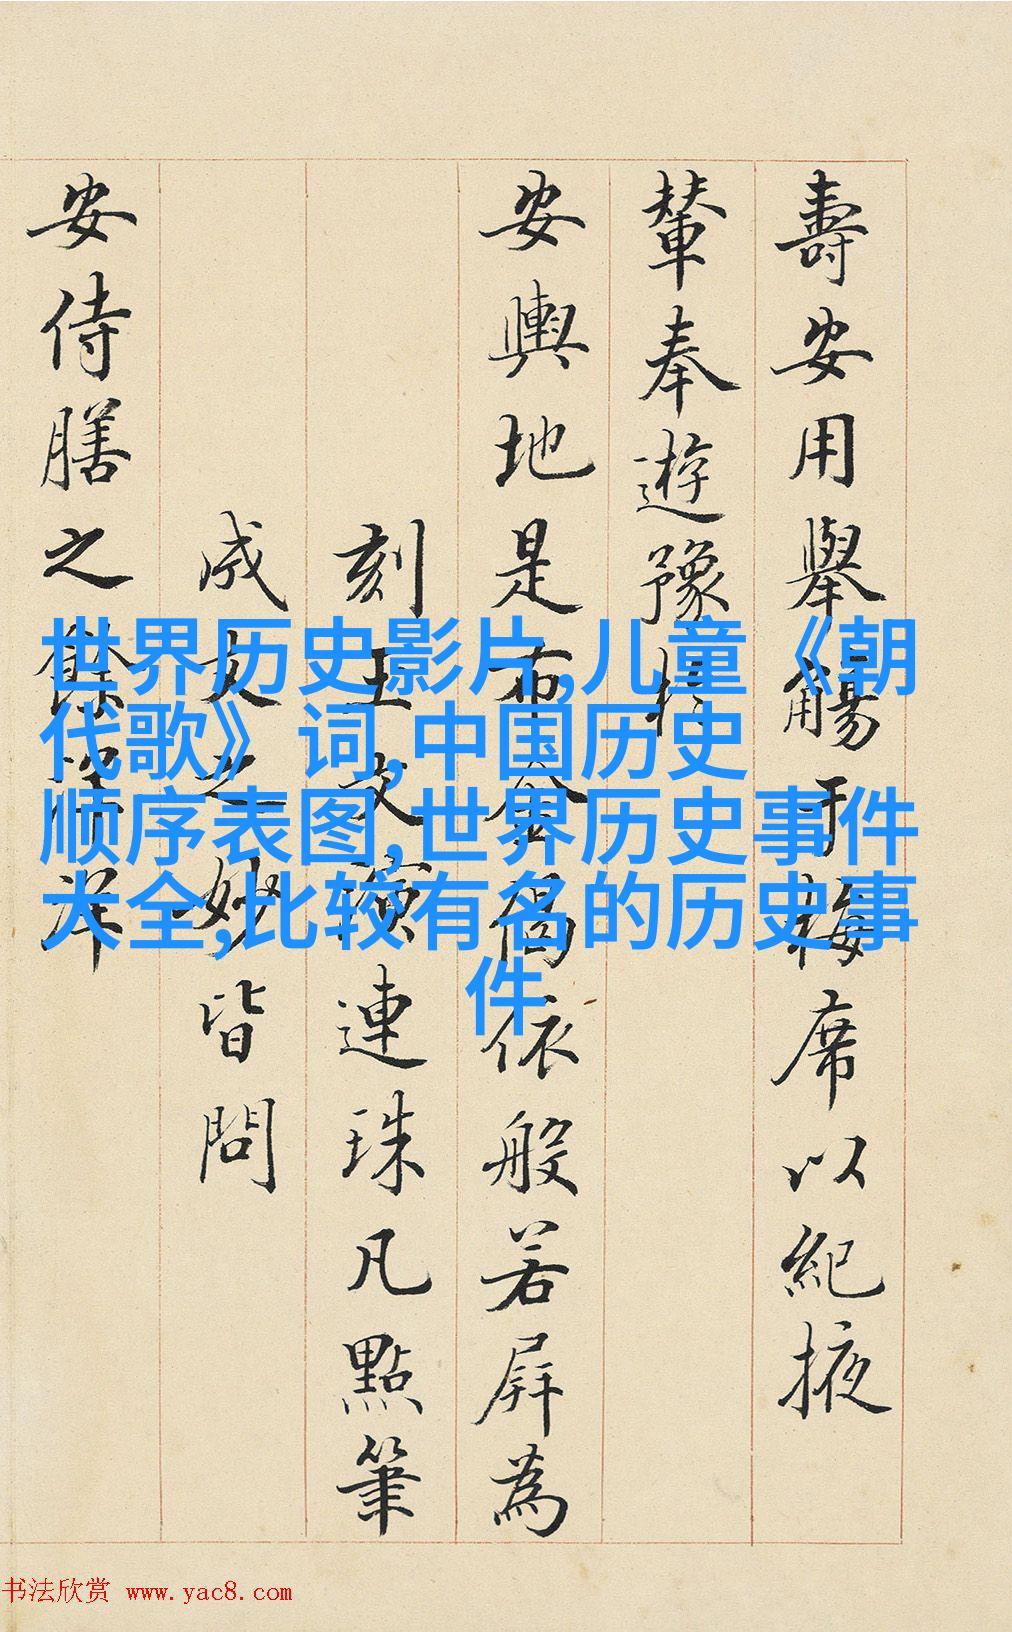 壽安用舉觴于席以紀掖
輦奉遊豫
安輿地是布金偈依般若屏為
刻文演連珠凡點筆
成文之妙皆問
安侍膳之餘
世界历史影片,儿童《朝
代歌》词,中国历史
顺序表图,世界历史事件
大全,比较有名的历史事
件
书法欣赏 www.yac8.com